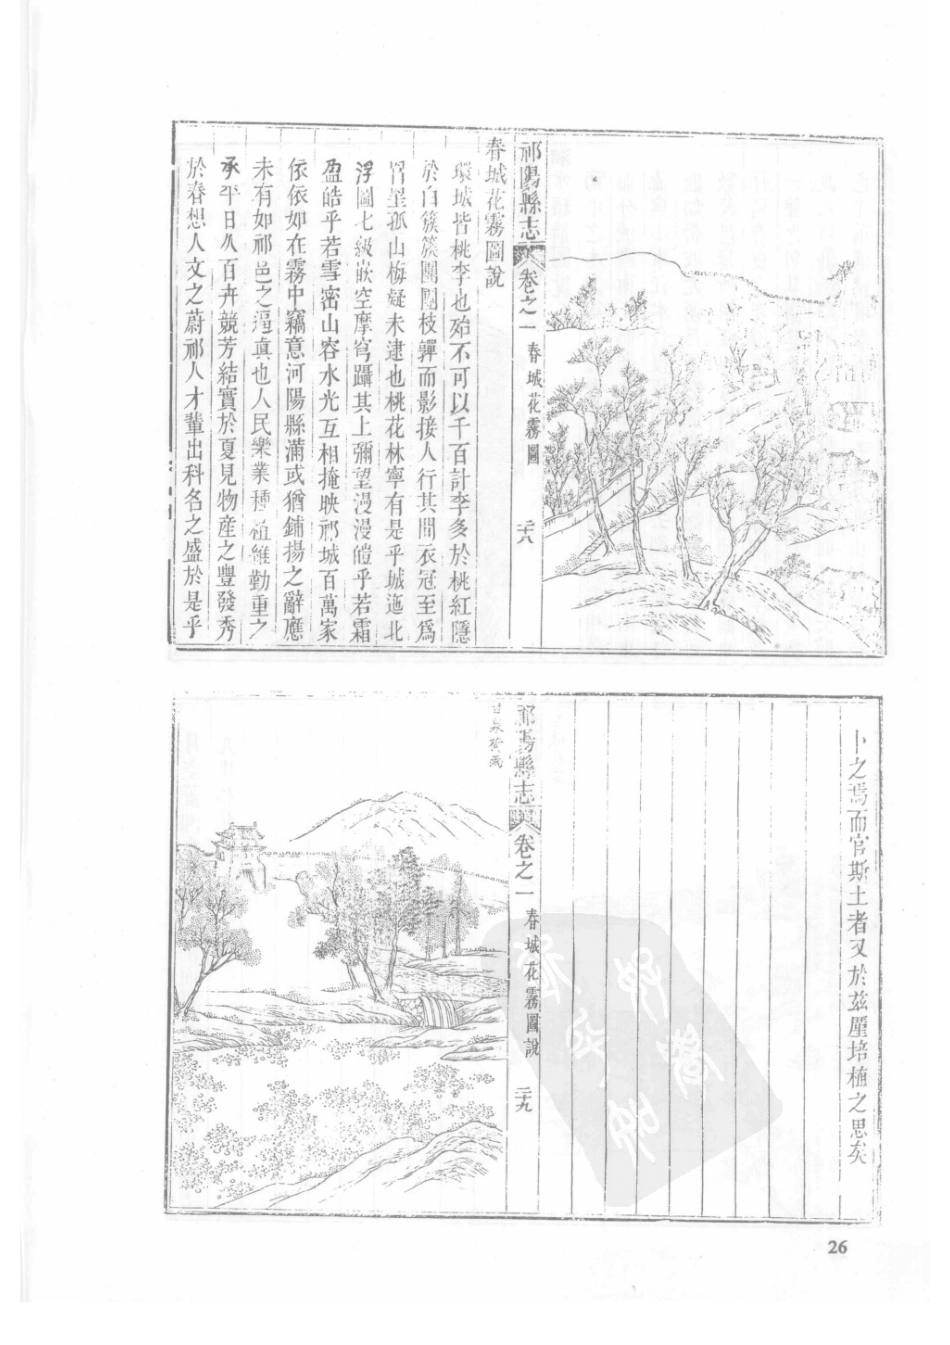 祁陽縣志
卷之一
春城花霧圖
二十八
春城花霧圖說
環城皆桃李也殆不可以千百計李多於桃紅隱
於白簇簇團團枝嚲而影接人行其間衣冠至爲
冐罣孤山梅凝未逮也桃花林寧有是乎城迤北
浮圖七級嵌空摩穹躡其上彌望漫漫皚乎若霜
盈皓乎若雪密山容水光互相掩映祁城百萬家
依依如在霧中竊意河陽縣滿或猶鋪揚之辭應
未有如祁邑之逼真也人民樂業種植維勤重之
承平日久百卉競芳結實於夏見物產之豐發秀
於春想人文之蔚祁人才輩出科名之盛於是乎
卜之焉而官斯土者又於茲厪培植之思矣
祁陽縣志
卷之一
春城花霧圖說
二十九
甘泉
26